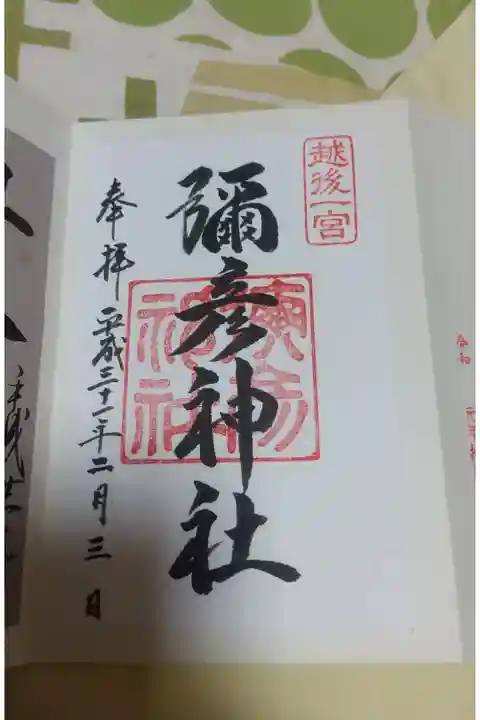 越後一宮
彌彦神社
奉拝 平成三十一年二月三日
令和